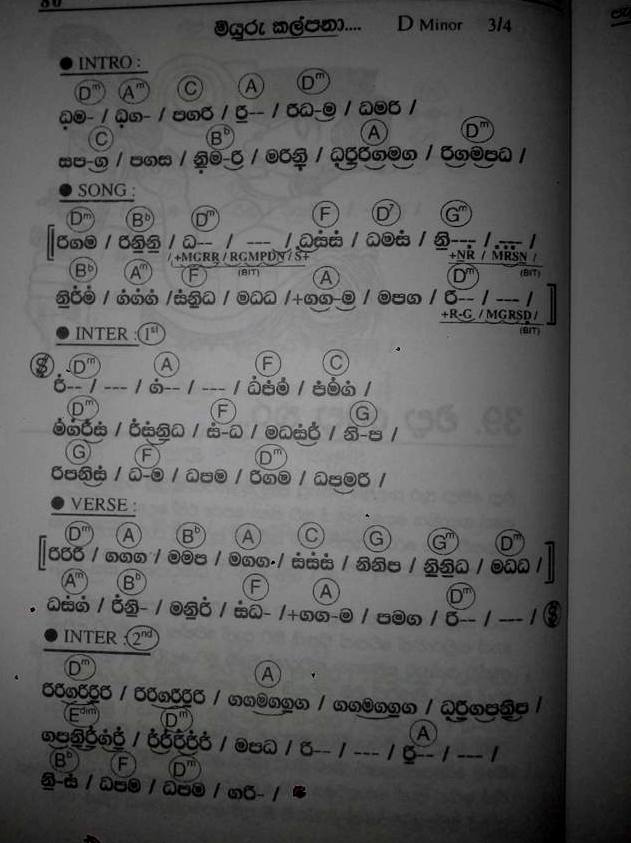 80
මියුරු කල්පනා.... D Minor 3/4
● INTRO :
Dm Am C A Dm
ධම- / ධග- / පගරි / රි-- / රිධ-ම / ධමරි /
C Bb A Dm
සප-ග / පගස / නිම-රි / මරිනි / ධරිරිගමග / රිගමපධ /
● SONG :
Dm Bb Dm F D7 Gm
[රිගම / රිනිනි / ධ-- / --- / ධසස / ධමස / නි--- / --- /
/ +MGRR / RGMPDN / S+ +NR / MRSN /
(BIT) (BIT)
Bb Am F A Dm
නිරිම / ගගග / සනිධ / මධධ / +ගග-ම / මපග / රි-- / --- / ]
+R-G / MGRSD /
(BIT)
● INTER : 1st
Dm A F C
රි-- / --- / ග-- / --- / ධපම / පමග /
Dm F G
මගරිස / රිසනිධ / ස-ධ / මධසරි / නි-ප /
G F Dm
රිපනිස / ධ-ම / ධපම / රිගම / ධපමරි /
● VERSE :
Dm A Bb A C G Gm Dm
[රිරිරි / ගගග / මමප / මගග / සසස / නිනිප / නිනිධ / මධධ / ]
Am Bb F A Dm
ධසග / රිනි- / මනිරි / සධ- / +ගග-ම / පමග / රි-- / --- /
● INTER : 2nd
Dm A
රිරිගරිරිරි / රිරිගරිරිරි / ගගමගගග / ගගමගගග / ධරිගපනිප /
Edim Dm A
ගපනිරිගරි / රිරිරිරිරි / මපධ / රි-- / --- / රි-- / --- /
Bb F Dm
නි-ස / ධපම / ධපම / ගරි- /